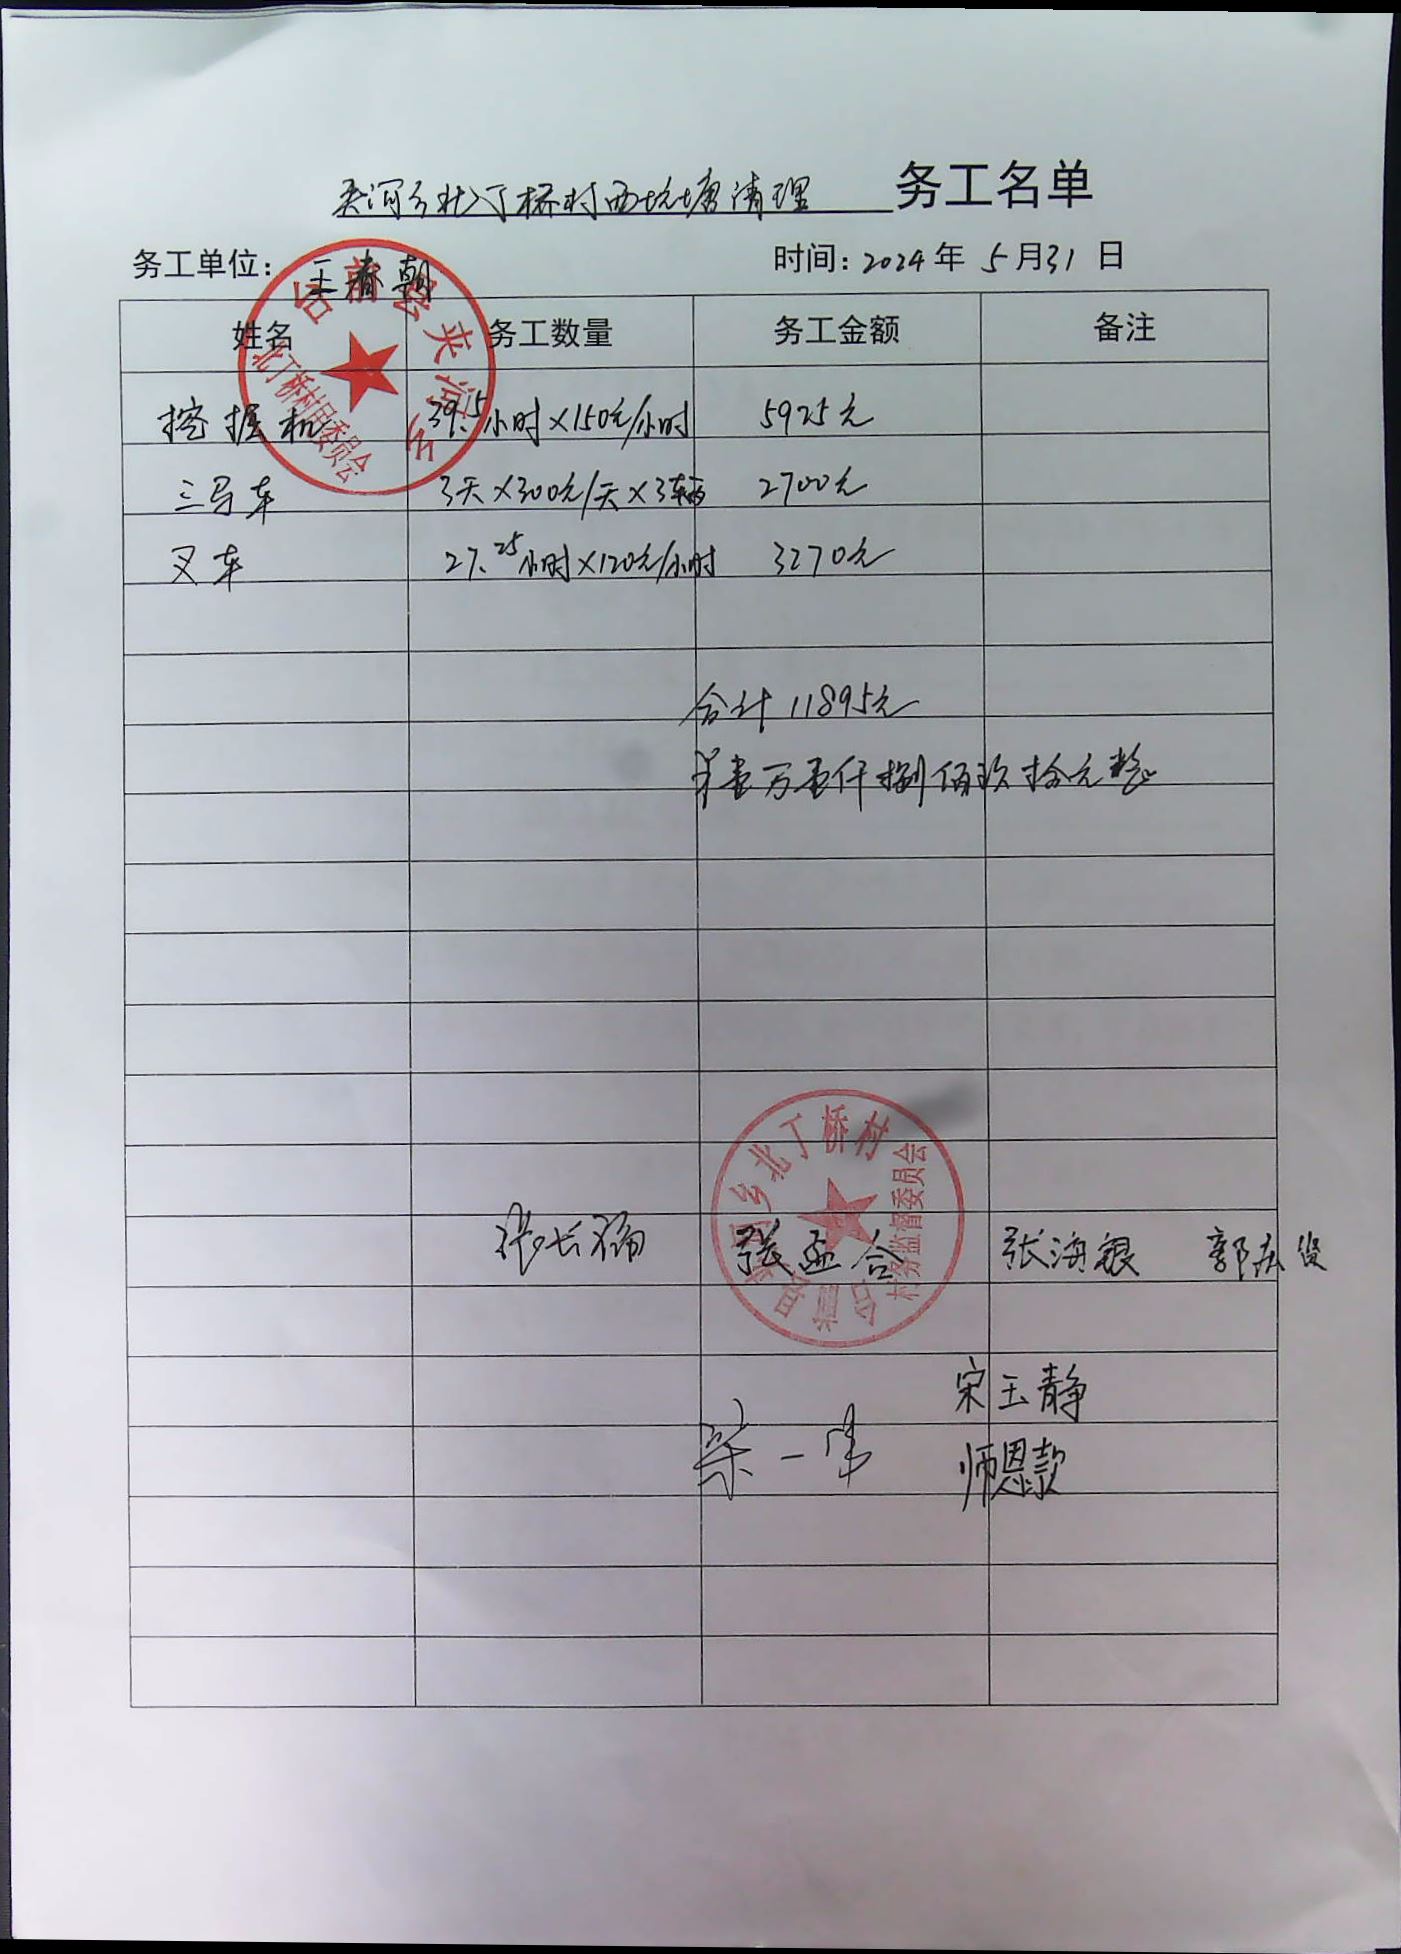 夹河乡北丁桥村西坑塘清理 务工名单
务工单位：王春朝 时间：2024年5月31日
姓名 务工数量 务工金额 备注
挖掘机 39.5小时×150元/小时 5925元
三马车 3天×300元/天×3辆 2700元
叉车 27.25小时×120元/小时 3270元
合计11895元
壹万壹仟捌佰玖拾元整
台前县夹河乡
北丁桥村民委员会
台前县夹河乡北丁桥村
村务监督委员会
张长福 张孟合 张海银 郭庆俊
宋玉静
梁一伟
师恩款